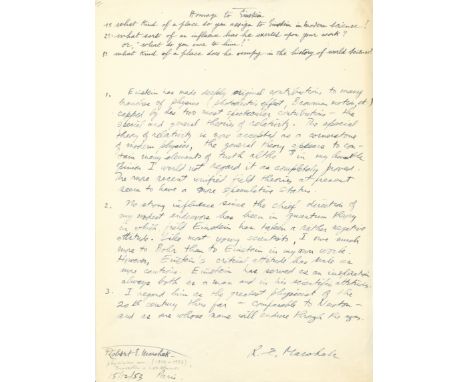 Homage to Einstein
1) what kind of a place do you assign to Einstein in modern science?
2) what sort of an influence has he exerted upon your work?
or, "what do you owe to him?"
3) what kind of a place does he occupy in the history of world science?
1. Einstein has made deeply original contributions to many
branches of physics (photoelectric effect, Brownian motion, etc)
capped by his two most spectacular contributions - the
special and general theories of relativity. The special
theory of relativity is now accepted as a cornerstone
of modern physics, the general theory appears to con-
tain many elements of truth altho' in my humble
opinion I would not regard it as completely proved.
The more recent unified field theories at present
seem to have a more speculative status.
2. No strong influence since the chief direction of
my modest endeavors has been in quantum theory
in which field Einstein has taken a rather negative
attitude. Like most young scientists, I owe much
more to Bohr than to Einstein in my own work.
However, Einstein's critical attitude has made us
more cautious. Einstein has served as an inspiration
always both as a man and in his scientific attitude.
3. I regard him as the greatest physicist of the
20th century thus far - comparable to Newton -
and as one whose name will endure through the ages.
R. E. Marshak
Robert E. Marshak
15/2/53 Paris